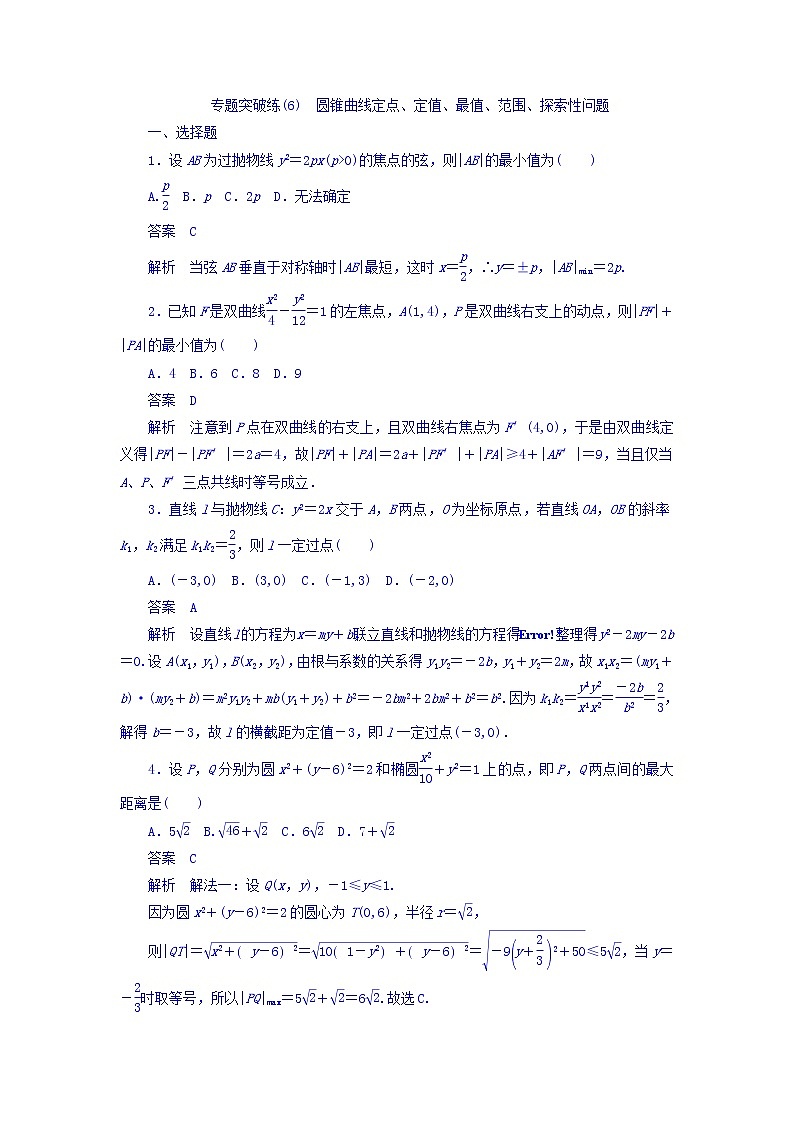 专题突破练(6)　圆锥曲线定点、定值、最值、范围、探索性问题
一、选择题
1．设AB为过抛物线y²＝2px(p>0)的焦点的弦，则|AB|的最小值为(　　)
A.p/2　B．p　C．2p　D．无法确定
答案　C
解析　当弦AB垂直于对称轴时|AB|最短，这时x＝p/2，∴y＝±p，|AB|min＝2p.
2．已知F是双曲线x²/4－y²/12＝1的左焦点，A(1,4)，P是双曲线右支上的动点，则|PF|＋
|PA|的最小值为(　　)
A．4　B．6　C．8　D．9
答案　D
解析　注意到P点在双曲线的右支上，且双曲线右焦点为F′(4,0)，于是由双曲线定
义得|PF|－|PF′|＝2a＝4，故|PF|＋|PA|＝2a＋|PF′|＋|PA|≥4＋|AF′|＝9，当且仅当
A、P、F′三点共线时等号成立．
3．直线l与抛物线C：y²＝2x交于A，B两点，O为坐标原点，若直线OA，OB的斜率
k₁，k₂满足k₁k₂＝2/3，则l一定过点(　　)
A．(－3,0)　B．(3,0)　C．(－1,3)　D．(－2,0)
答案　A
解析　设直线l的方程为x＝my＋b联立直线和抛物线的方程得Error!整理得y²－2my－2b
＝0.设A(x₁，y₁)，B(x₂，y₂)，由根与系数的关系得y₁y₂＝－2b，y₁＋y₂＝2m，故x₁x₂＝(my₁＋
b)·(my₂＋b)＝m²y₁y₂＋mb(y₁＋y₂)＋b²＝－2bm²＋2bm²＋b²＝b².因为k₁k₂＝y¹y²/x¹x²＝－2b/b²＝2/3，
解得b＝－3，故l的横截距为定值－3，即l一定过点(－3,0)．
4．设P，Q分别为圆x²＋(y－6)²＝2和椭圆x²/10＋y²＝1上的点，即P，Q两点间的最大
距离是(　　)
A．5√2　B.√46＋√2　C．6√2　D．7＋√2
答案　C
解析　解法一：设Q(x，y)，－1≤y≤1.
因为圆x²＋(y－6)²＝2的圆心为T(0,6)，半径r＝√2，
则|QT|＝√(x²＋( y－6) ²)＝√(10( 1－y²) ＋( y－6) ²)＝√(－9(y＋2/3)²＋50)≤5√2，当y＝
－2/3时取等号，所以|PQ|max＝5√2＋√2＝6√2.故选C.